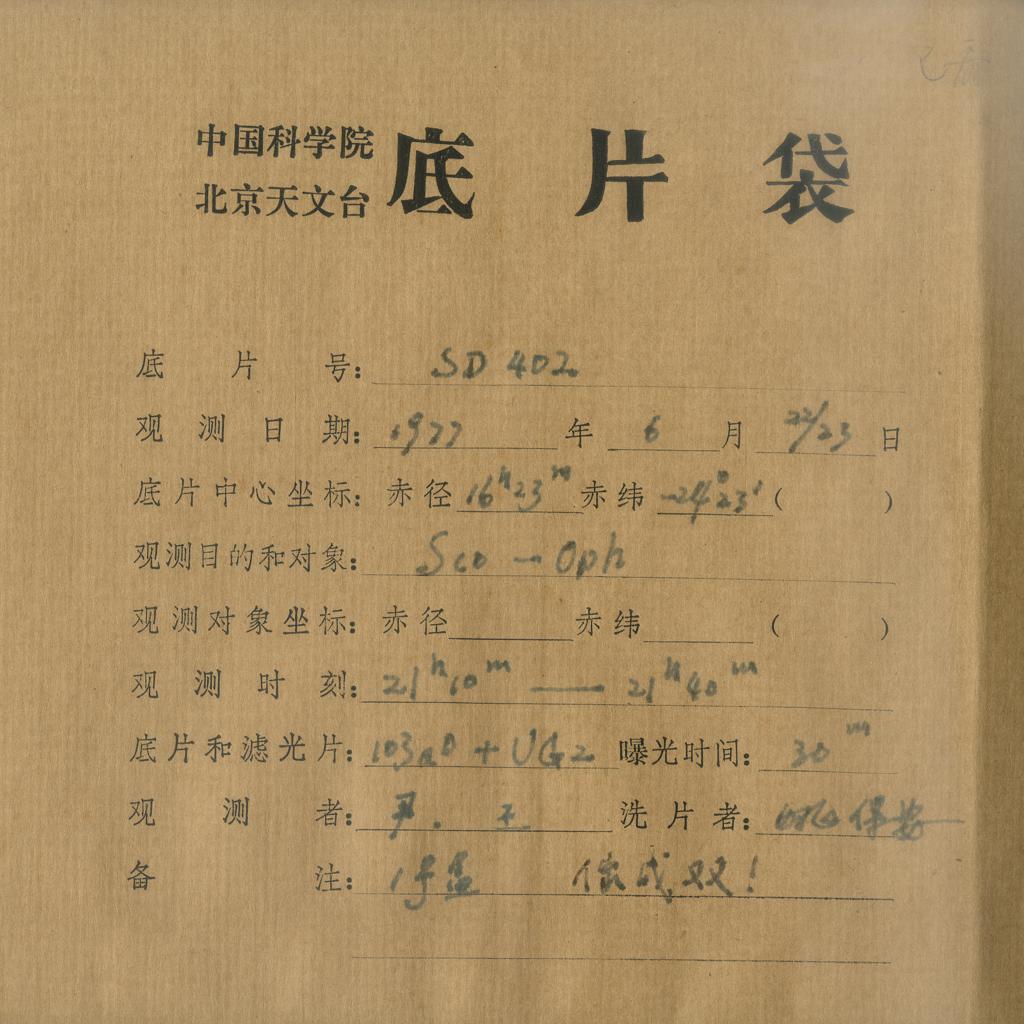 中国科学院
北京天文台
底片袋
底片号: SD 402
观测日期: 1977年6月22/23日
底片中心坐标: 赤径16h23m赤纬-24°23'( )
观测目的和对象: Sco — Oph
观测对象坐标: 赤径 赤纬 ( )
观测时刻: 21h10m — 21h40m
底片和滤光片: 103aO + UG2 曝光时间: 30m
观测者: 尹. 王 洗片者: 保安
备注: 1号盒 成双!